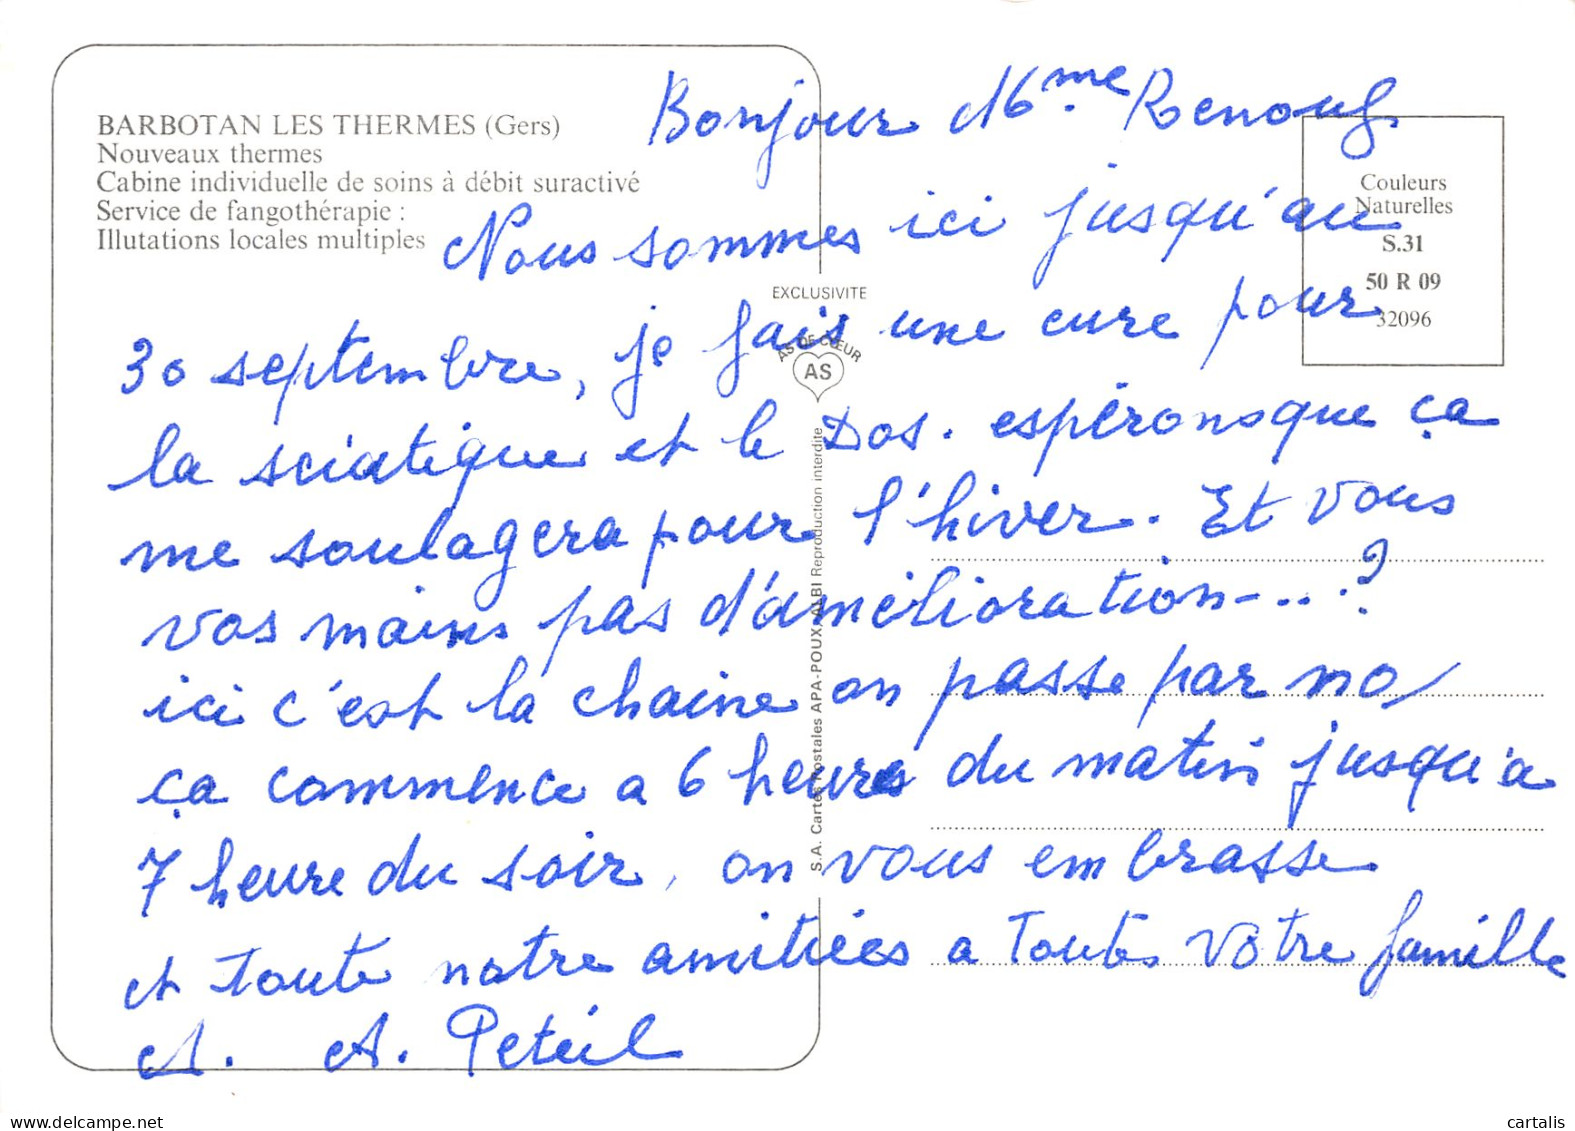 BARBOTAN LES THERMES (Gers)
Nouveaux thermes
Cabine individuelle de soins à débit suractivé
Service de fangothérapie :
Illutations locales multiples
Couleurs
Naturelles
S.31
50 R 09
32096
EXCLUSIVITE
AS DE CŒUR
AS
S.A. Cartes Postales APA-POUX, ALBI Reproduction interdite
Bonjour Mme Renouf
Nous sommes ici jusqu'au
30 septembre, je fais une cure pour
la sciatique et le Dos. espérons que ça
me soulagera pour l'hiver. Et vous
vos mains pas d'amélioration-...?
ici c'est la chaine on passe par no
ça commence a 6 heures du matin jusqu'a
7 heure du soir, on vous embrasse
et toute notre amitiées a Toute Votre famille
A. A. Peteil
cartalis